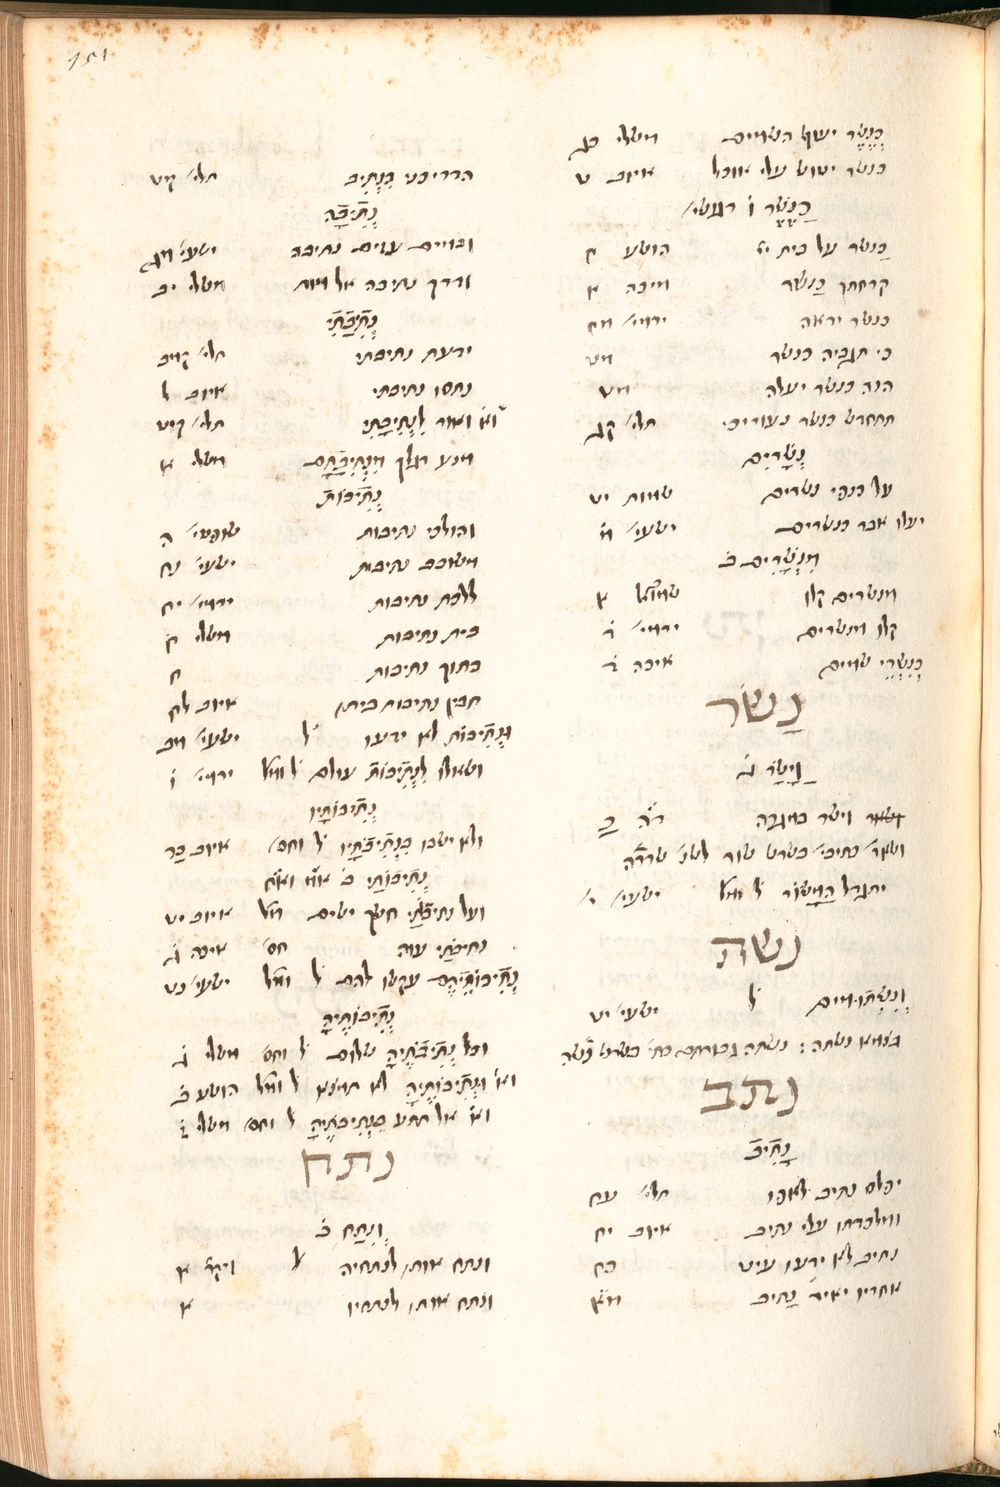 151
כְּנֶשֶׁר יעוף השמים משלי כג
כנשר יטוש עלי אוכל איוב ט
כַּנֶּשֶׁר ו
כנשר על בית יי הושע ח
קרחתך כַּנשר מיכה א
כנשר יראה ירמי׳ מח
כי תגביה כנשר מט
הנה כנשר יעלה מט
תתחדש כנשר נעוריכי תלי׳ קג
נְשָׁרִים
על כנפי נשרים שמות יט
יעלו אבר כנשרים ישעי׳ מ
מִנְּשָׁרִים ב
מנשרים קלו שמואל א
קלו מנשרים ירמי׳ ד
מִנִּשְׁרֵי שמים איכה ד
נַשׂר
וַיָּשַׂר ב
וישר במגרה דה ב כ
יתגדל הַמַּשּׂוֹר ל ומל ישעי׳ י
נשה
וְנִשְּׁתוּ מים ל ישעי׳ יט
בצמא נשתה: נשתה גבורתם כת׳ בשרש
נתב
נָתִיב
יפלס נתיב לאפו תלי׳ עח
ומלכדתו עלי נתיב איוב יח
נתיב לא ידעו עיט כח
אחריו יאיר נָתיב מא
הדריכני בִּנְתִיב תלי׳ קיט
נְתִיבָה
ובמים עזים נתיבה ישעי׳ מג
ודרך נתיבה אל מות משלי יב
נְתִיבָתִי
ידעת נתיבתי תלי׳ קמב
נתסו נתיבתי איוב ל
וא׳ ואור לִנְתִיבָתִי תלי׳ קיט
מנע רגלך מִנְּתִיבָתָם משלי א
נְתִיבוֹת
והולכי נתיבות שופטי׳ ה
משובב נתיבות ישעי׳ נח
ללכת נתיבות ירמי׳ יח
בית נתיבות משלי ח
בתוך נתיבות ח
תבין נתיבות ביתו איוב לח
בִּנְתִיבוֹת לא ידעו ל ישעי׳ מב
ושאלו לִנְתִיבוֹת עולם ל ומל ירמי׳ ו
נְתִיבוֹתָיו
ולא ישבו בִּנְתִיבֹתָיו ל וחס׳ איוב כד
נְתִיבוֹתַי ב
ועל נתיבוֹתַי חשך ישים מל איוב יט
נתיבֹתַי עוה חס׳ איכה ג
נְתִיבוֹתֵיהֶם עקשו להם ל ומל ישעי׳ נט
נְתִיבוֹתֶיהָ
וכל נְתִיבֹתֶיהָ שלום ל וחס׳ משלי ג
וא׳ וּנְתִיבוֹתֶיהָ לא תמצא ל ומל הושע ב
וא׳ אל תתע בִּנְתִיבֹתֶיהָ ל וחס׳ משלי ז
נתח
וְנִתַּח ב
ונתח אותו לנתחיה ל ויקר׳ א
ונתח אותו לנתחיו א